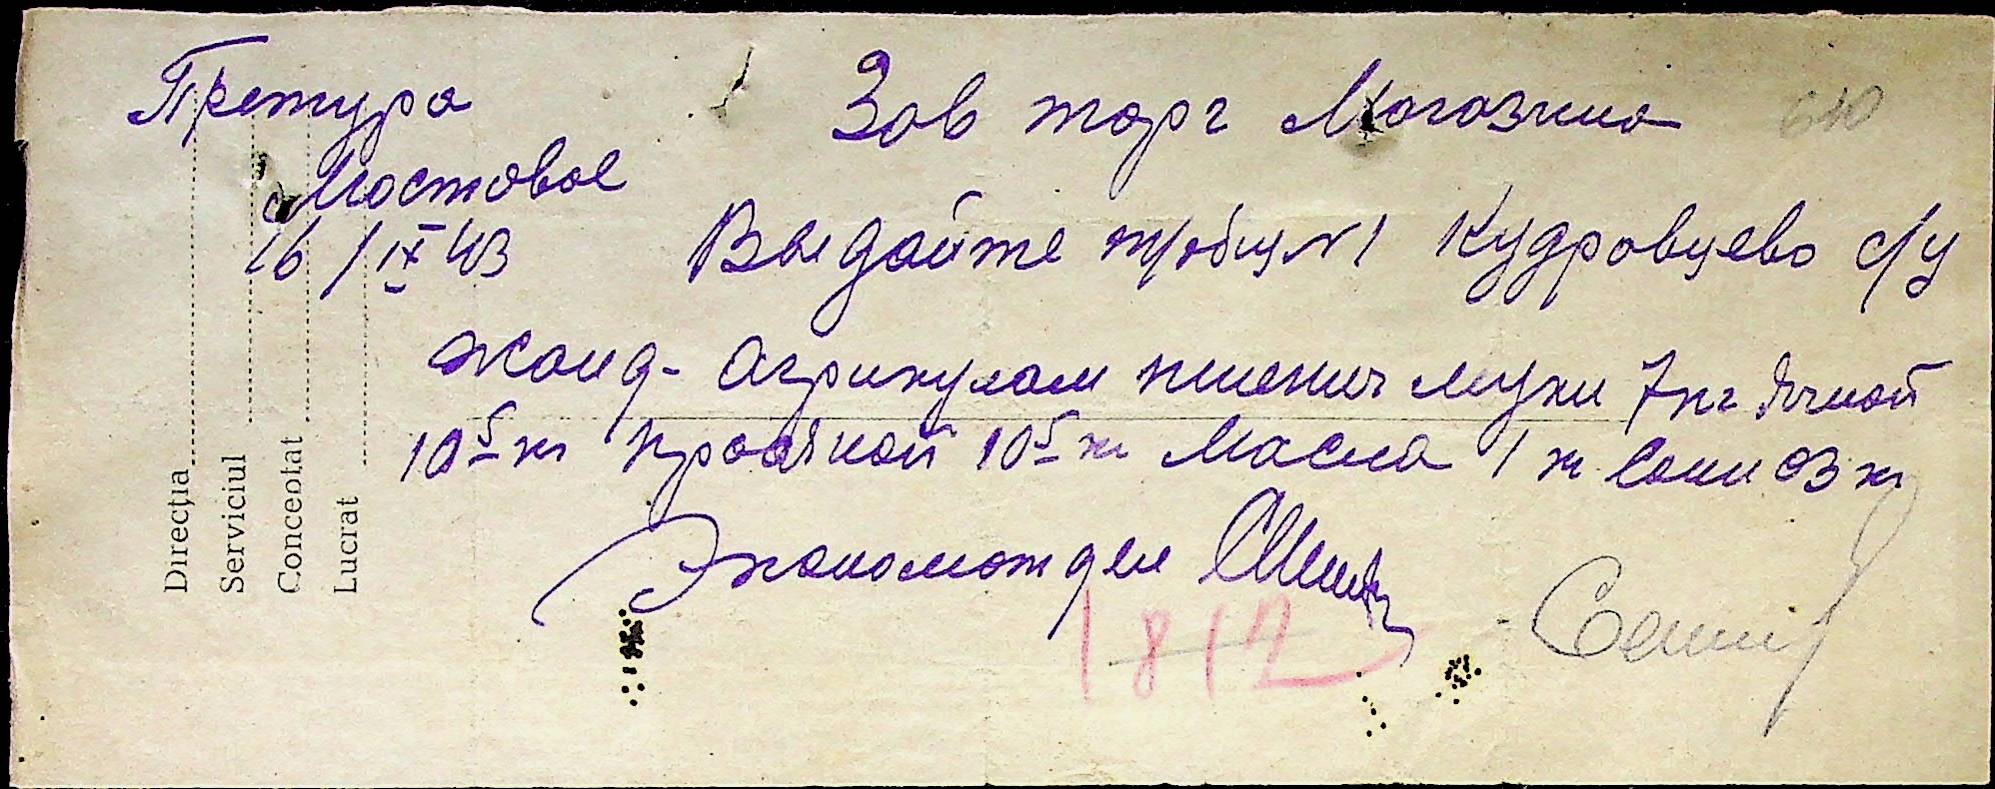 Претура
Мостовое
16/IX 43
Зав торг Магазина
Выдайте т/общ №1 Кудрявцево с/у
жанд- Агрикулам пшенич муки 7 кг Ячной
10 5 кг просяной 10 5 кг Масла 1 кг Соли 03 кг
Экономотдел
1812
Direcția
Serviciul
Conceotat
Lucrat